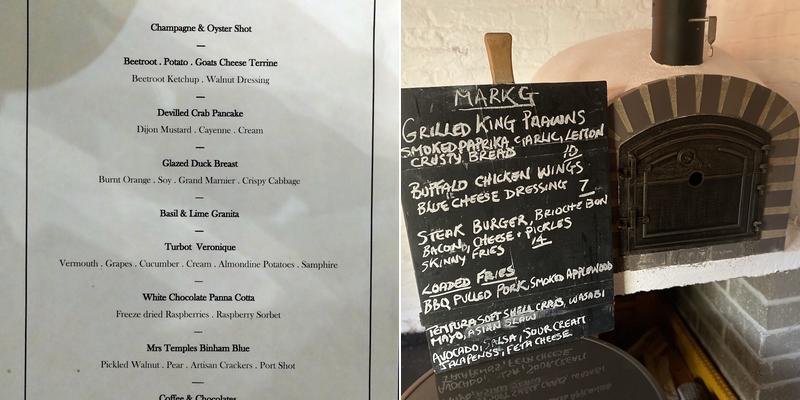 Champagne & Oyster Shot
Beetroot . Potato . Goats Cheese Terrine
Beetroot Ketchup . Walnut Dressing
Devilled Crab Pancake
Dijon Mustard . Cayenne . Cream
Glazed Duck Breast
Burnt Orange . Soy . Grand Marnier . Crispy Cabbage
Basil & Lime Granita
Turbot Veronique
Vermouth . Grapes . Cucumber . Cream . Almondine Potatoes . Samphire
White Chocolate Panna Cotta
Freeze dried Raspberries . Raspberry Sorbet
Mrs Temples Binham Blue
Pickled Walnut . Pear . Artisan Crackers . Port Shot
Coffee & Chocolates
MARKG
GRILLED KING PRAWNS
SMOKED PAPRIKA, GARLIC, LEMON
CRUSTY BREAD 10
BUFFALO CHICKEN WINGS
BLUE CHEESE DRESSING 7
STEAK BURGER, BRIOCHE BUN
BACON, CHEESE + PICKLES
SKINNY FRIES 14
LOADED FRIES
BBQ PULLED PORK, SMOKED APPLEWOOD
TEMPURA SOFT SHELL CRAB, WASABI
MAYO, ASIAN SLAW
AVOCADO, SALSA, SOUR CREAM
JALAPENOS, FETA CHEESE